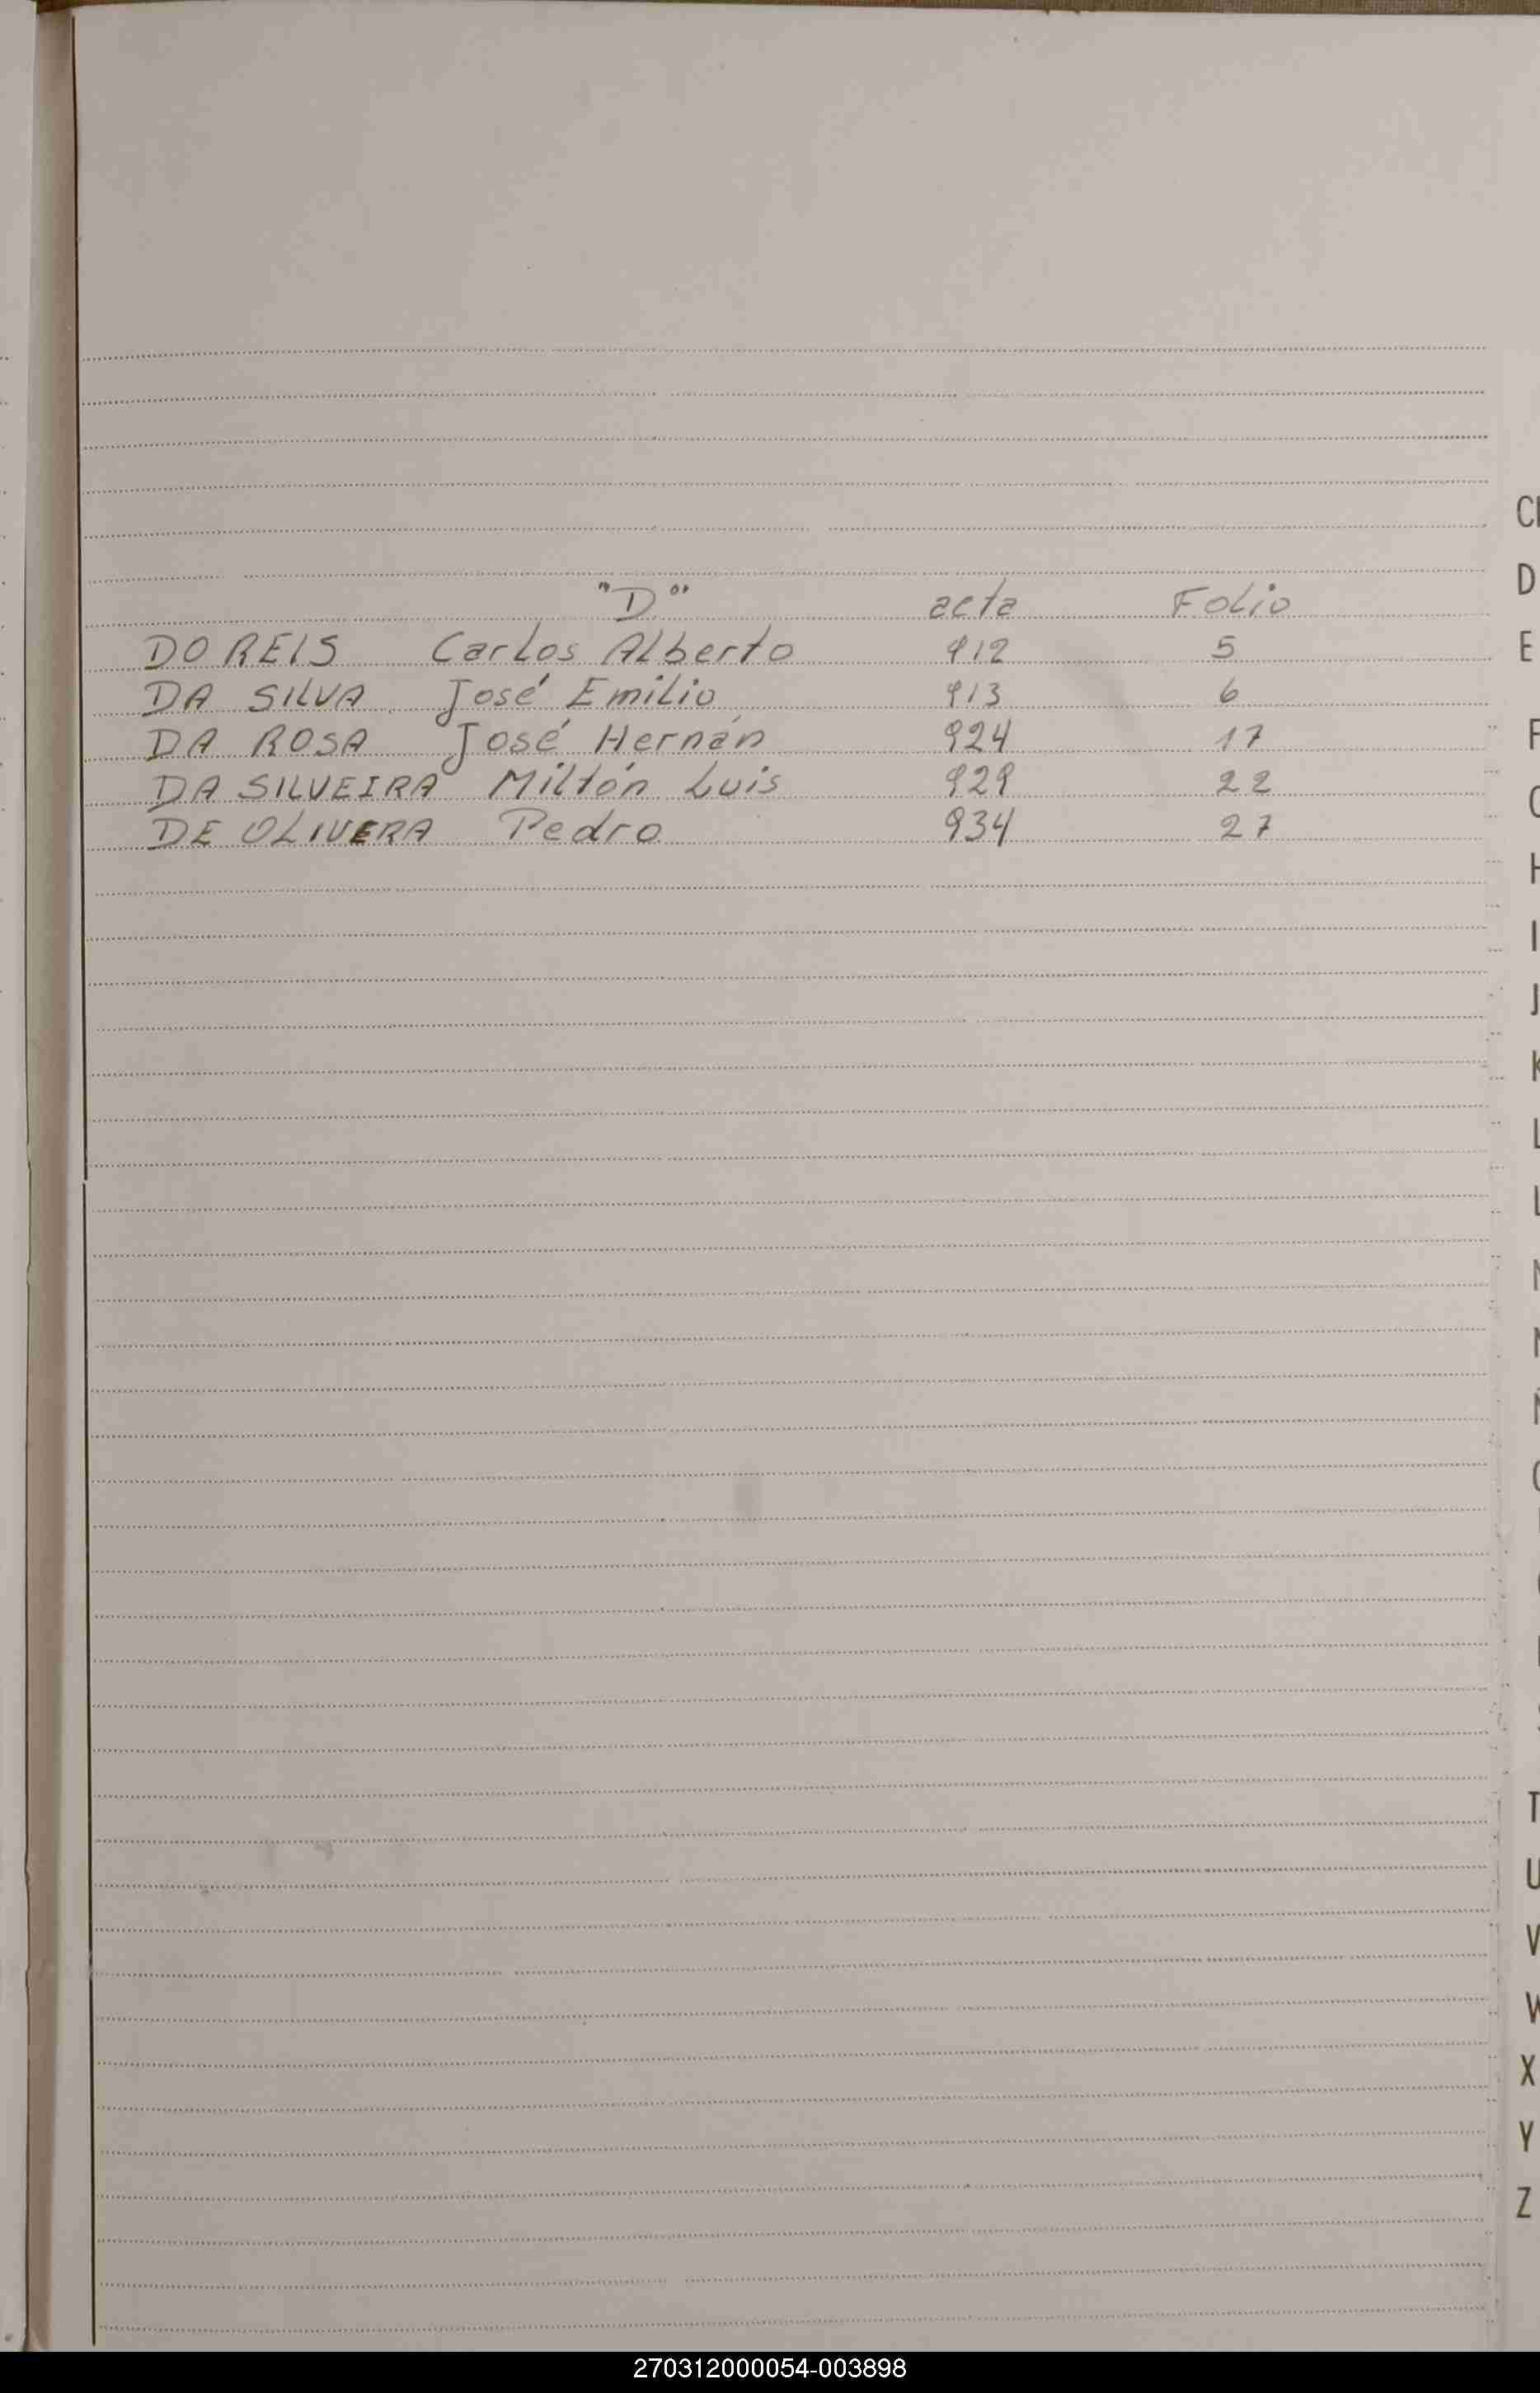 "D" acta Folio
DO REIS Carlos Alberto 912 5
DA SILVA José Emilio 913 6
DA ROSA José Hernán 924 17
DA SILVEIRA Miltón Luis 929 22
DE OLIVERA Pedro 934 27
D
E
I
J
K
T
U
V
W
X
Y
Z
270312000054-003898